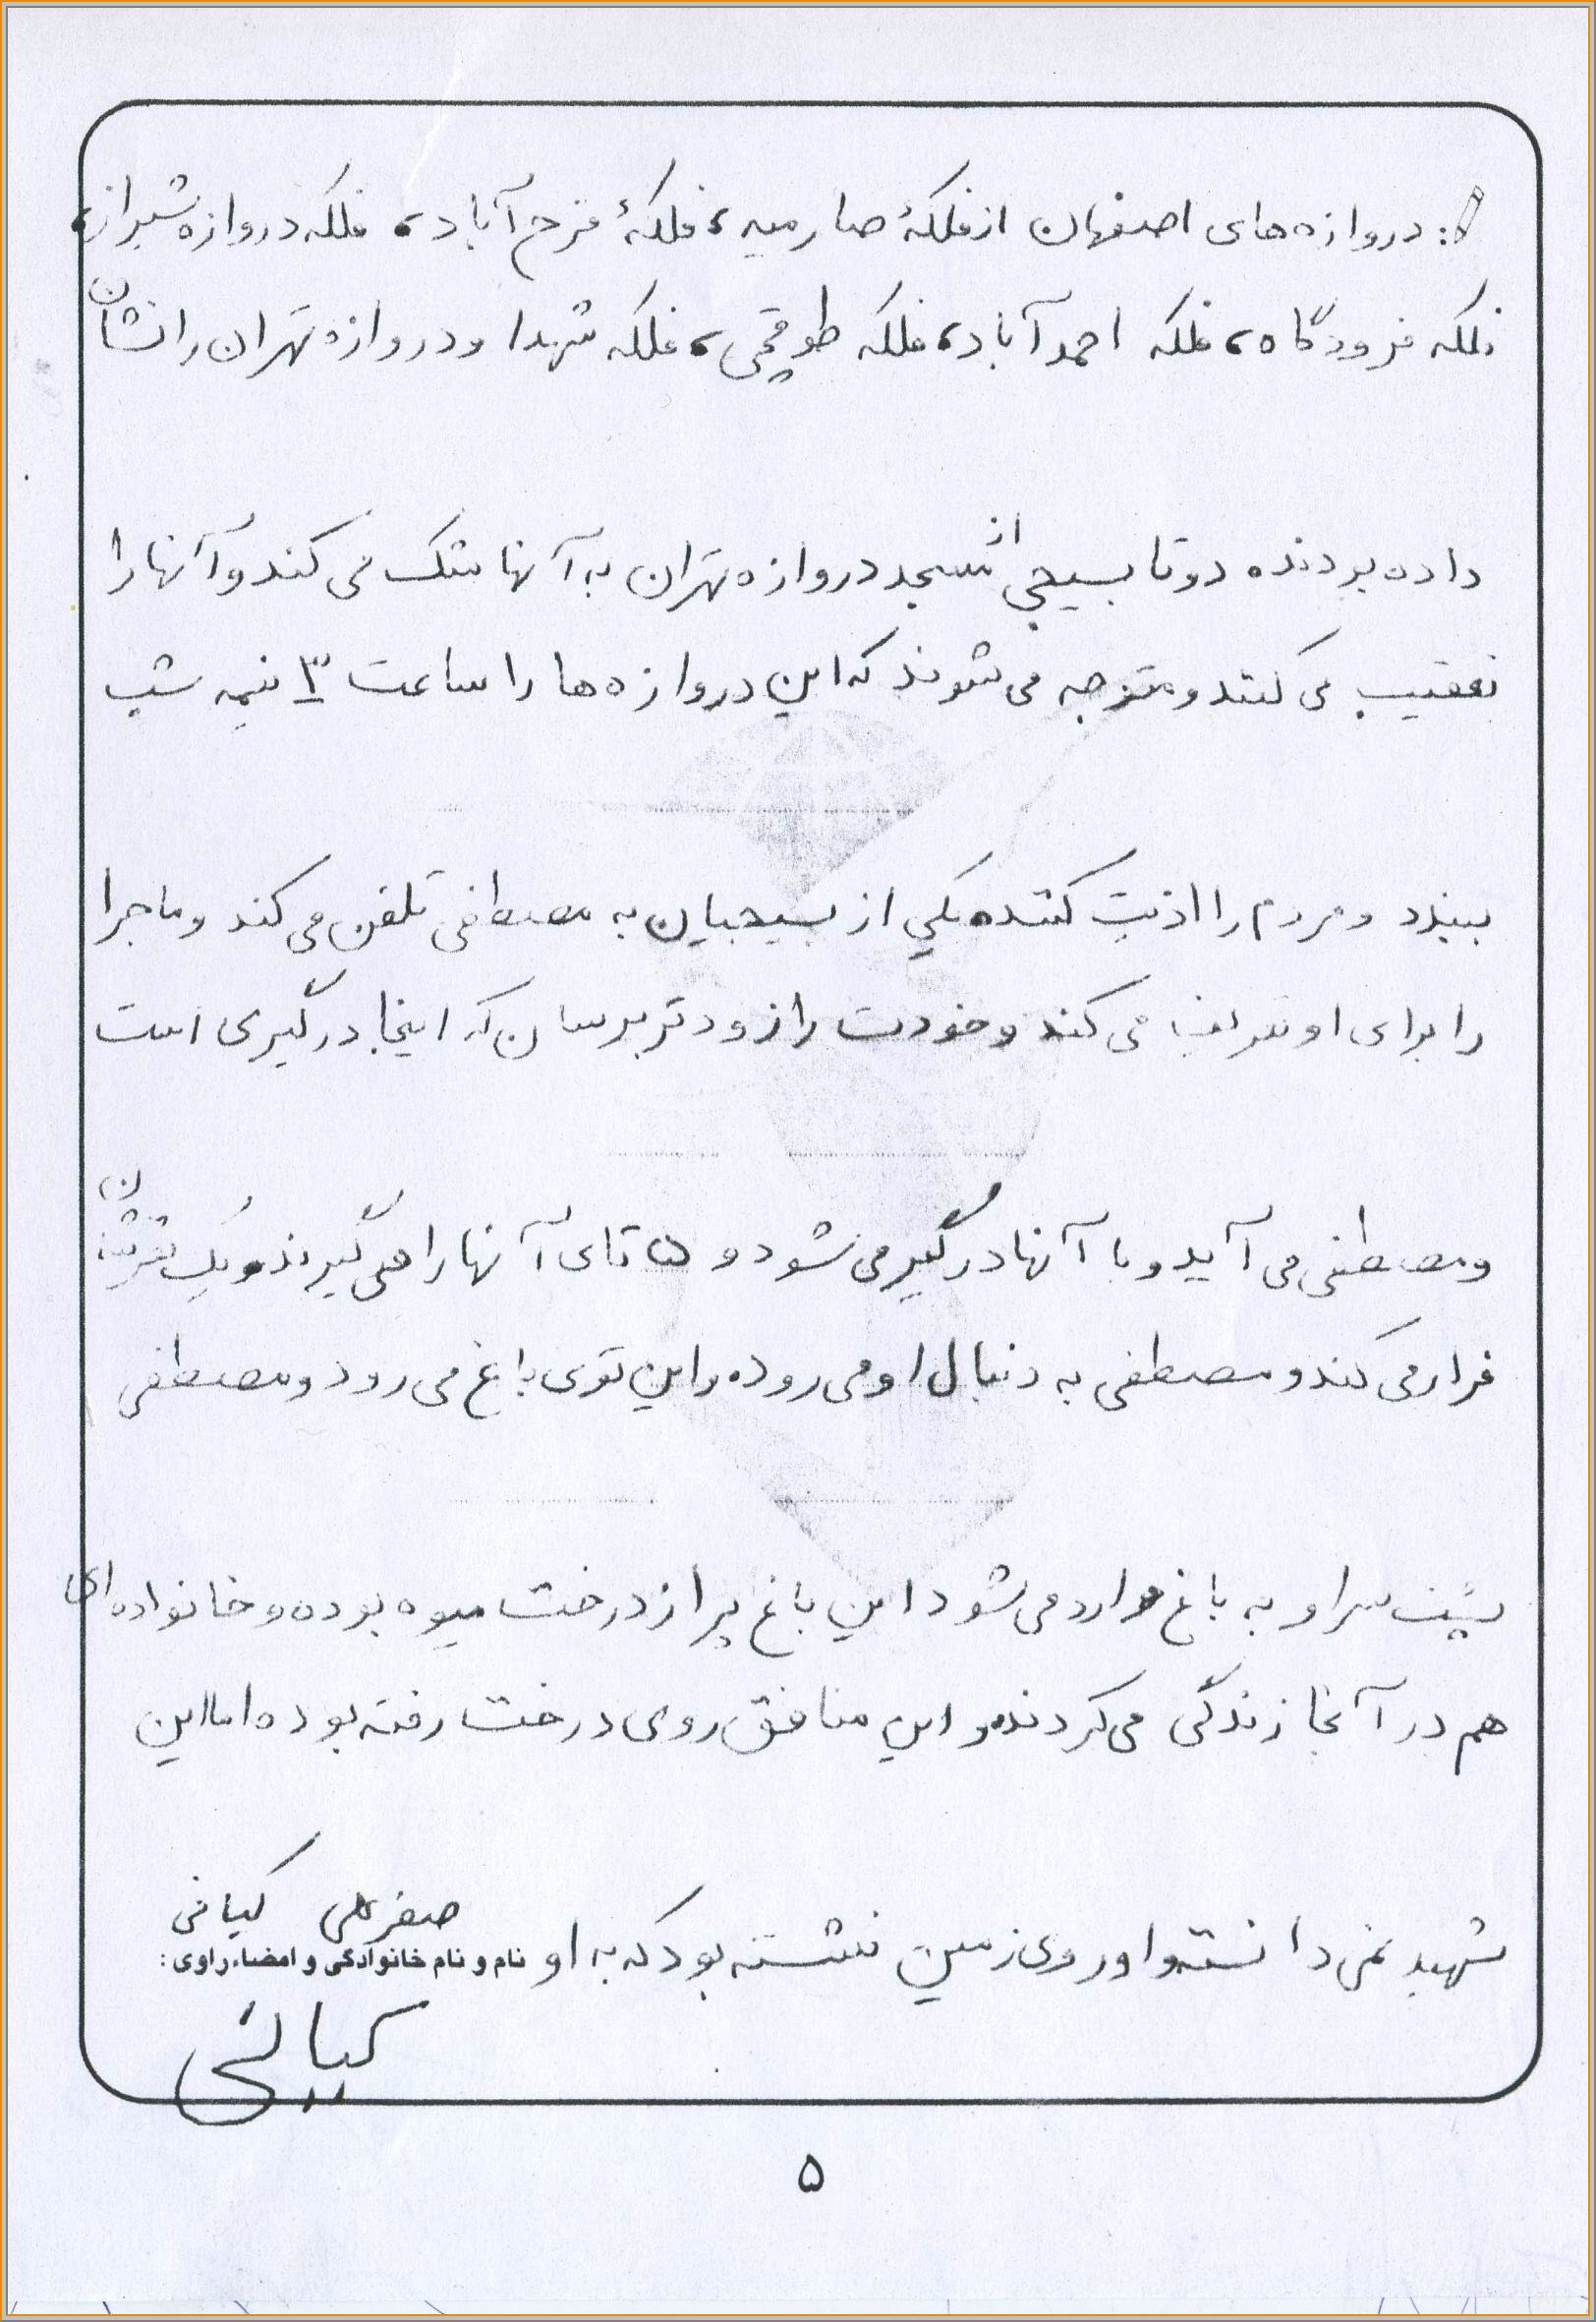 : دروازه‌های اصفهان از فلکهٔ صارمیه، فلکهٔ فرح آباد، فلکه دروازه شیراز،
فلکه فرودگاه، فلکه احمد آباد، فلکه طوقچی، فلکه شهدا و دروازه تهران را نشان
داده بودند، دو تا بسیجی از مسجد دروازه تهران به آنها شک می کند و آنها را
تعقیب می کنند و متوجه می شوند که این دروازه ها را ساعت ۳ نیمه شب
ببندد و مردم را اذیت کنند، یکی از بسیجیان به مصطفی تلفن می کند و ماجرا
را برای او تعریف می کند و خودت را زودتر برسان که اینجا درگیری است
و مصطفی می آید و با آنها درگیر می شود و ۵ تای آنها را می گیرند و یک نفرشان
فرار می کند و مصطفی به دنبال او می رود، و این توی باغ می رود و مصطفی
پشت سر او به باغ وارد می شود این باغ پر از درخت میوه بوده و خانواده ای
هم در آنجا زندگی می کردند و این منافق روی درخت رفته بوده اما این
شهید نمی دانست و او روی زمین ننشسته بود که به او
صفرعلی کیانی
نام و نام خانوادگی و امضاء راوی :
کیانی
۵